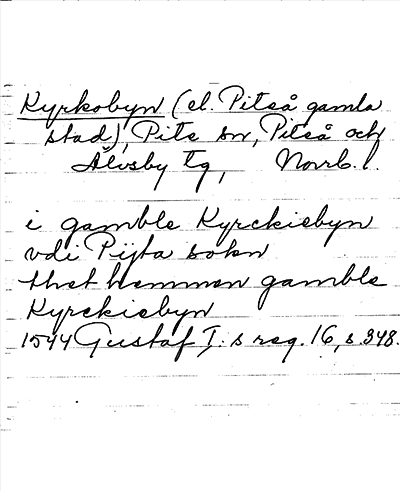 Kyrkobyn (el. Piteå gamla
stad), Pite sn, Piteå och
Älvsby tg, Norrb. l.
i gamble Kyrckiebyn
vdi Pijta sokn
thet hemman gamble
Kyrckiebyn
1544 Gustaf I:s reg. 16, s. 348.